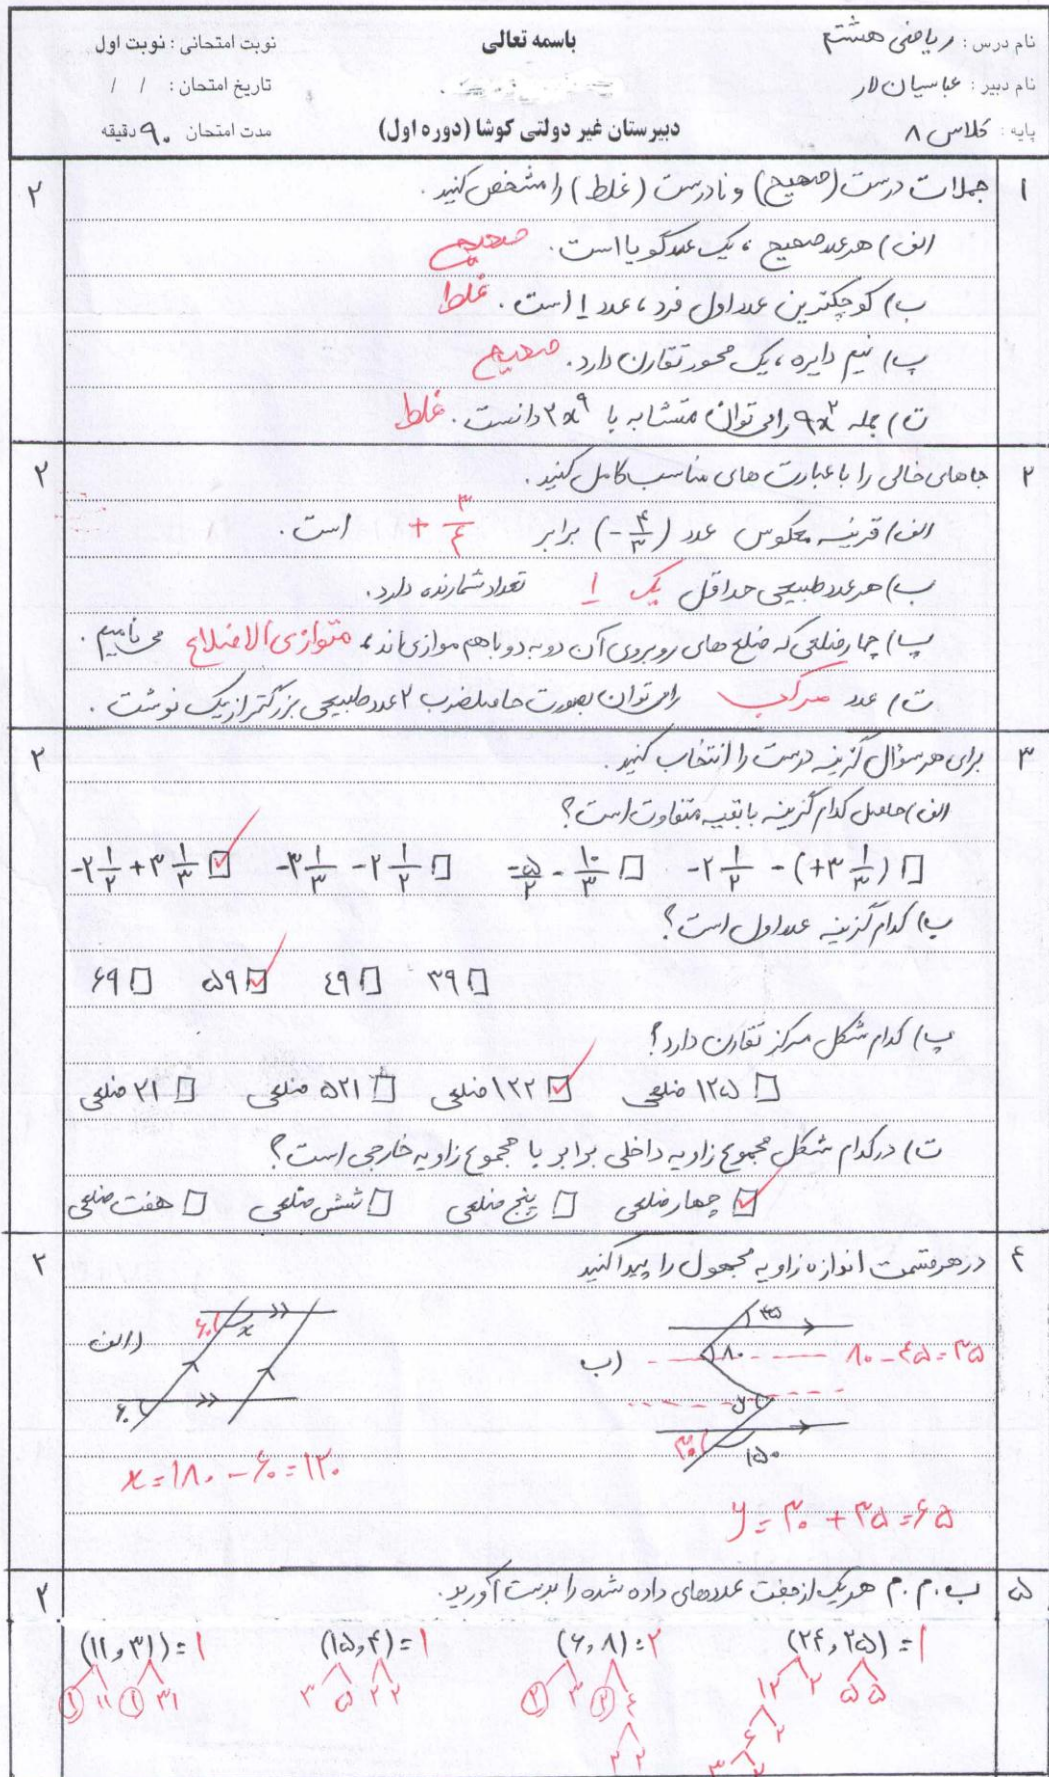 نام درس : ریاضی هشتم
باسمه تعالی
نوبت امتحانی : نوبت اول
نام دبیر : عباسیان لار
تاریخ امتحان : / /
پایه : کلاس ۸
دبیرستان غیر دولتی کوشا (دوره اول)
مدت امتحان ۹۰ دقیقه
۱ جملات درست (صحیح) و نادرست (غلط) را مشخص کنید . ۲
الف) هر عدد صحیح ، یک عدد گویا است . صحیح
ب) کوچکترین عدد اول فرد ، عدد ۱ است . غلط
پ) نیم دایره ، یک محور تقارن دارد . صحیح
ت) جمله ۹x² را می توان متشابه با ۲x⁹ دانست . غلط
۲ جاهای خالی را با عبارت های مناسب کامل کنید . ۲
الف) قرینه معکوس عدد (-۴/۳) برابر +۳/۴ است .
ب) هر عدد طبیعی حداقل یک ۱ تعداد شمارنده دارد .
پ) چهارضلعی که ضلع های روبروی آن دو به دو باهم موازی اند ، متوازی الاضلاع می نامیم .
ت) عدد مرکب را می توان بصورت حاصلضرب ۲ عدد طبیعی بزرگتر از یک نوشت .
۳ برای هر سؤال گزینه درست را انتخاب کنید . ۲
الف) حاصل کدام گزینه با بقیه متفاوت است ؟
□ -۲ ۱/۲ - (+۳ ۱/۳) □ -۵/۲ - ۱۰/۳ □ -۳ ۱/۳ - ۲ ۱/۲ ☑ -۲ ۱/۲ + ۳ ۱/۳
ب) کدام گزینه عدد اول است ؟
□ ۳۹ □ ۴۹ ☑ ۵۹ □ ۶۹
پ) کدام شکل مرکز تقارن دارد ؟
□ ۱۲۵ ضلعی ☑ ۱۲۲ ضلعی □ ۵۲۱ ضلعی □ ۲۱ ضلعی
ت) در کدام شکل مجموع زاویه داخلی برابر با مجموع زاویه خارجی است ؟
☑ چهارضلعی □ پنج ضلعی □ شش ضلعی □ هفت ضلعی
۴ در هر قسمت اندازه زاویه مجهول را پیدا کنید ۲
الف)
۶۰ x
۶۰
x = ۱۸۰ - ۶۰ = ۱۲۰
ب)
۴۵
۸۰ ۸۰ - ۴۵ = ۳۵
y
۳۰ ۱۵۰
y = ۳۰ + ۳۵ = ۶۵
۵ ب . م . م هر یک از جفت عددهای داده شده را بدست آورید . ۲
(۲۴ , ۲۵) = ۱ (۶ , ۸) = ۲ (۱۵ , ۴) = ۱ (۱۱ , ۳۱) = ۱
۱۲ ۲ ۵ ۵ ۲ ۳ ۲ ۴ ۳ ۵ ۲ ۲ ۱ ۱۱ ۱ ۳۱
۶ ۲ ۲ ۲
۳ ۲